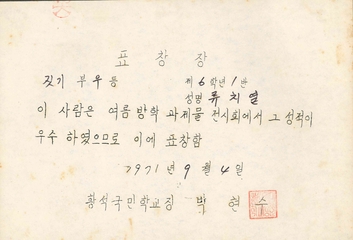 표창장
짓기 부 우등
제 6 학년 1 반
성명 류치열
이 사람은 여름 방학 과제물 전시회에서 그 성적이
우수 하였으므로 이에 표창함
1971 년 9 월 4 일
황석국민학교장 박 현 수